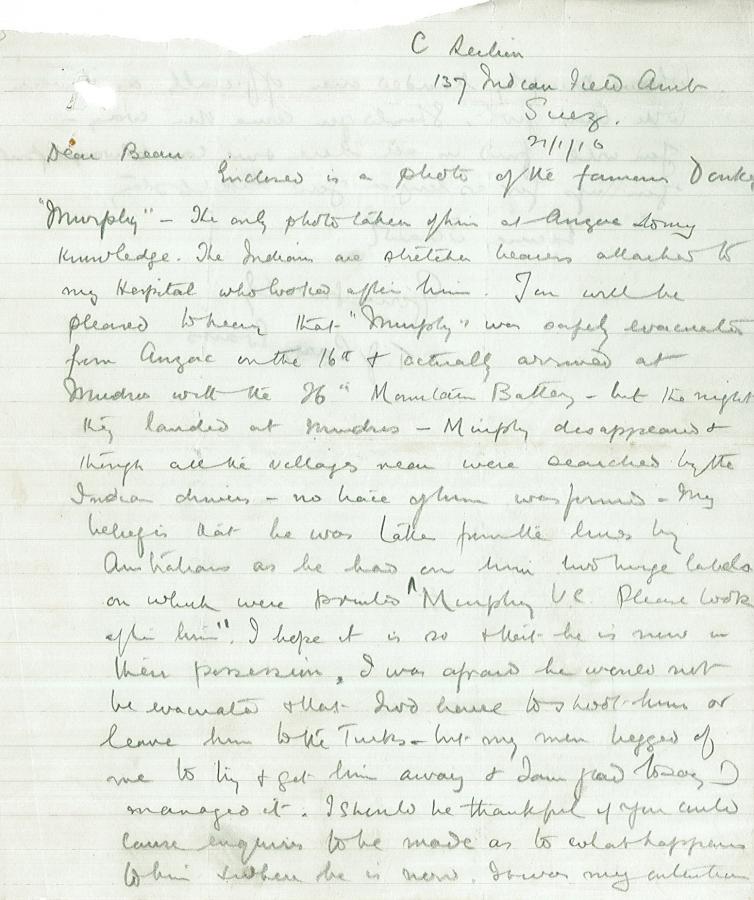 C Section
137 Indian Field Amb
Suez.
21/1/16
Dear Bean
Enclosed is a photo of the famous Donkey
"Murphy" – The only photo taken of him at Anzac to my
knowledge. The Indians are stretcher bearers attached to
my Hospital who looked after him. You will be
pleased to hear that "Murphy" was safely evacuated
from Anzac on the 16th & actually arrived at
Mudros with the 26th Mountain Battery – but the night
they landed at Mudros – Murphy disappeared &
though all the villages near were searched by the
Indian drivers – no trace of him was found – My
belief is that he was taken from the lines by
Australians as he had on him two large labels
on which were printed "Murphy VC. Please look
after him". I hope it is so & that he is now in
their possession. I was afraid he would not
be evacuated & that I wd have to shoot him or
leave him to the Turks – but my men begged of
me to try & get him away & I am glad to say I
managed it. I should be thankful if you could
cause enquiries to be made as to what happened
to him & where he is now. It was my intention